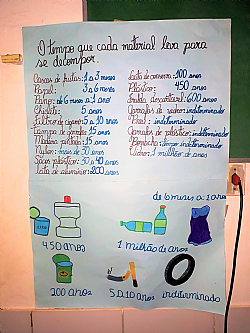 O tempo que cada material leva para
se decompor.
Cascas de frutas: 1 a 3 meses
Papel: 3 a 6 meses
Pano: de 6 meses a 1 ano
Chiclete: 5 anos
Filtro de cigarro: 5 a 10 anos
Tampa de garrafa: 15 anos
Madeira pintada: 15 anos
Nylon: mais de 30 anos
Sacos plásticos: 30 a 40 anos
Lata de alumínio: 200 anos
Lata de conserva: 100 anos
Plástico: 450 anos
Fralda descartável: 600 anos
indeterminado
Pneu: indeterminado
Garrafas de plástico: indeterminado
Borracha: tempo indeterminado
Vidro: 1 milhão de anos
de 6 meses a 1 ano
450 anos
1 milhão de anos
200 anos
5 a 10 anos
indeterminado